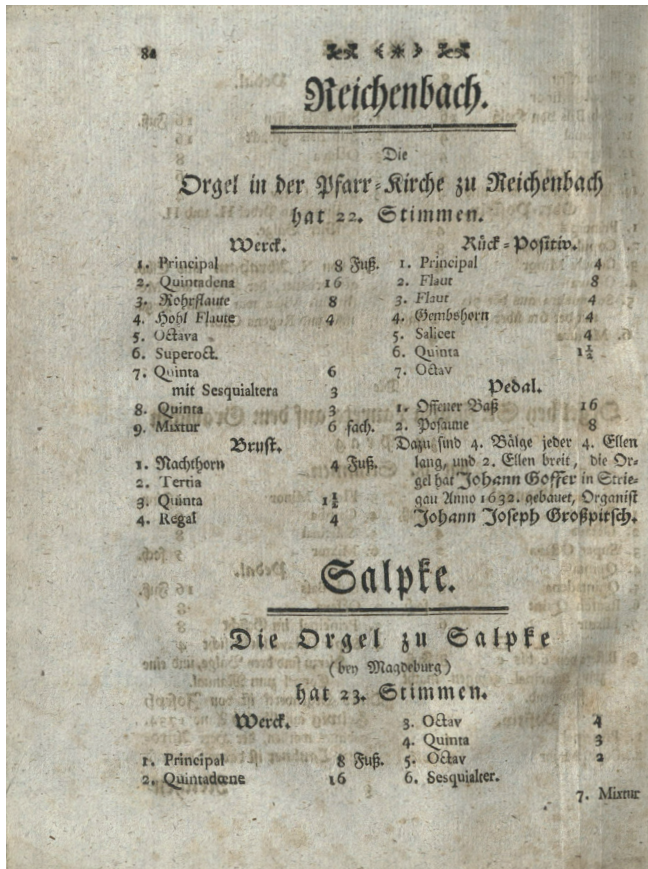 82
Reichenbach.
Die
Orgel in der Pfarr-Kirche zu Reichenbach
hat 22. Stimmen.
Werck.
1. Principal 8 Fuß.
2. Quintadena 16
3. Rohrflaute 8
4. Hohl Flaute 4
5. Octava
6. Superoct.
7. Quinta 6
mit Sesquialtera 3
8. Quinta 3
9. Mixtur 6 fach.
Brust.
1. Nachthorn 4 Fuß.
2. Tertia
3. Quinta 1½
4. Regal 4
Rück-Positiv.
1. Principal 4
2. Flaut 8
3. Flaut 4
4. Gembshorn 4
5. Salicet 4
6. Quinta 1½
7. Octav
Pedal.
1. Offener Baß 16
2. Posaune 8
Dazu sind 4. Bälge jeder 4. Ellen
lang, und 2. Ellen breit, die Or-
gel hat Johann Goffer in Strie-
gau Anno 1632. gebauet, Organist
Johann Joseph Großpitsch.
Salpke.
Die Orgel zu Salpke
(bey Magdeburg)
hat 23. Stimmen.
Werck.
1. Principal 8 Fuß.
2. Quintadœne 16
3. Octav 4
4. Quinta 3
5. Octav 2
6. Sesquialter.
7. Mixtur